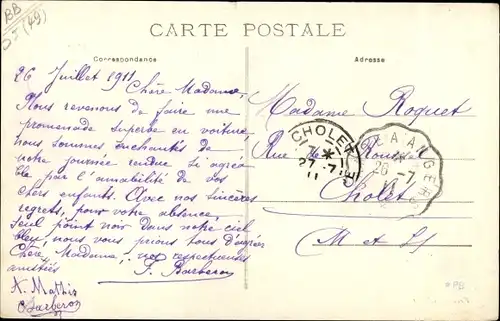 BB
DJ (49)
CARTE POSTALE
Correspondance
Adresse
26 Juillet 1911
Chère Madame,
Nous revenons de faire une
promenade superbe en voiture,
nous sommes enchantés de
notre journée rendue si agréa
ble par l'amabilité de vos
chers enfants. Avec nos sincères
regrets, pour votre absence,
seul point noir dans notre ciel
bleu, nous vous prions tous d'agréer
Chère Madame, nos respectueuses
amitiés
F. Barberon
A. Mathis
Barberon
Madame Roquet
Rue de
Cholet
M et L
CHOLET
7 * 1
27-7
11
ANGERS
26-7